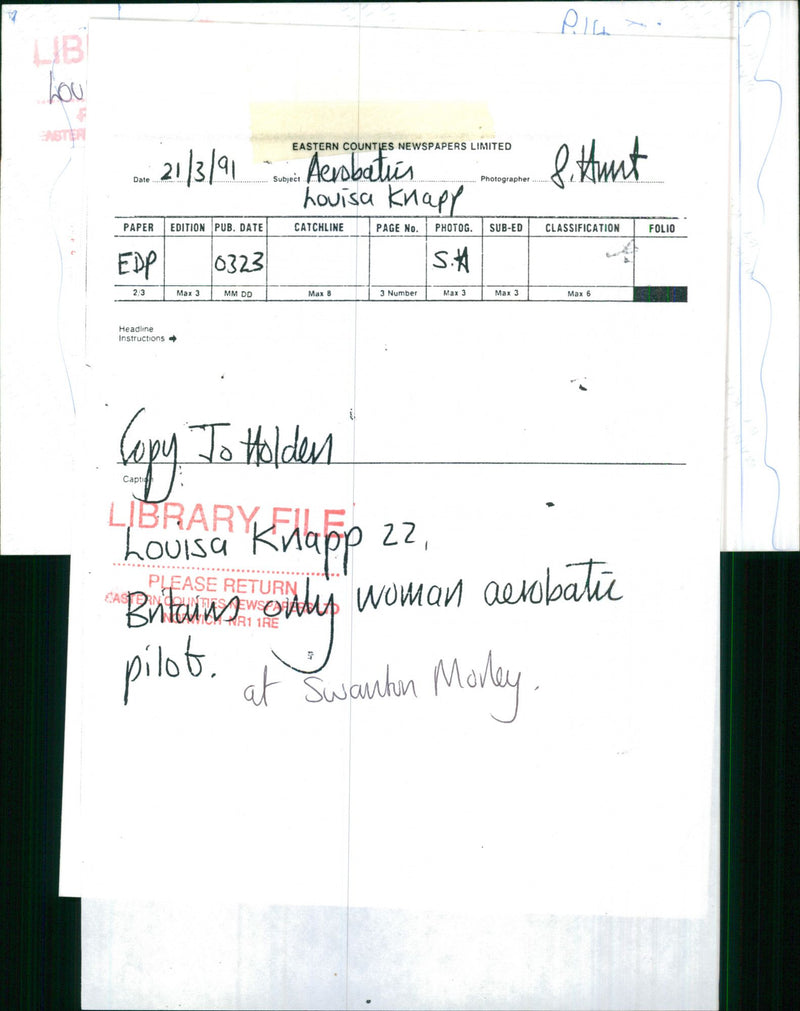 LIB
Lou
EASTERN COUNTIES NEWSPAPERS LIMITED
Date 21/3/91 Subject Aerobatics Photographer S. Hunt
Louisa Knapp
PAPER EDITION PUB. DATE CATCHLINE PAGE No. PHOTOG. SUB-ED CLASSIFICATION FOLIO
EDP 0323 S.H
2/3 Max 3 MM DD Max 8 3 Number Max 3 Max 3 Max 6
Headline
Instructions ➔
Copy Jo Holden
Caption
LIBRARY FILE
Louisa Knapp 22,
PLEASE RETURN
EASTERN COUNTIES NEWSPAPERS LTD
Britains only woman aerobatic
NORWICH NR1 1RE
pilot.
at Swanton Morley.